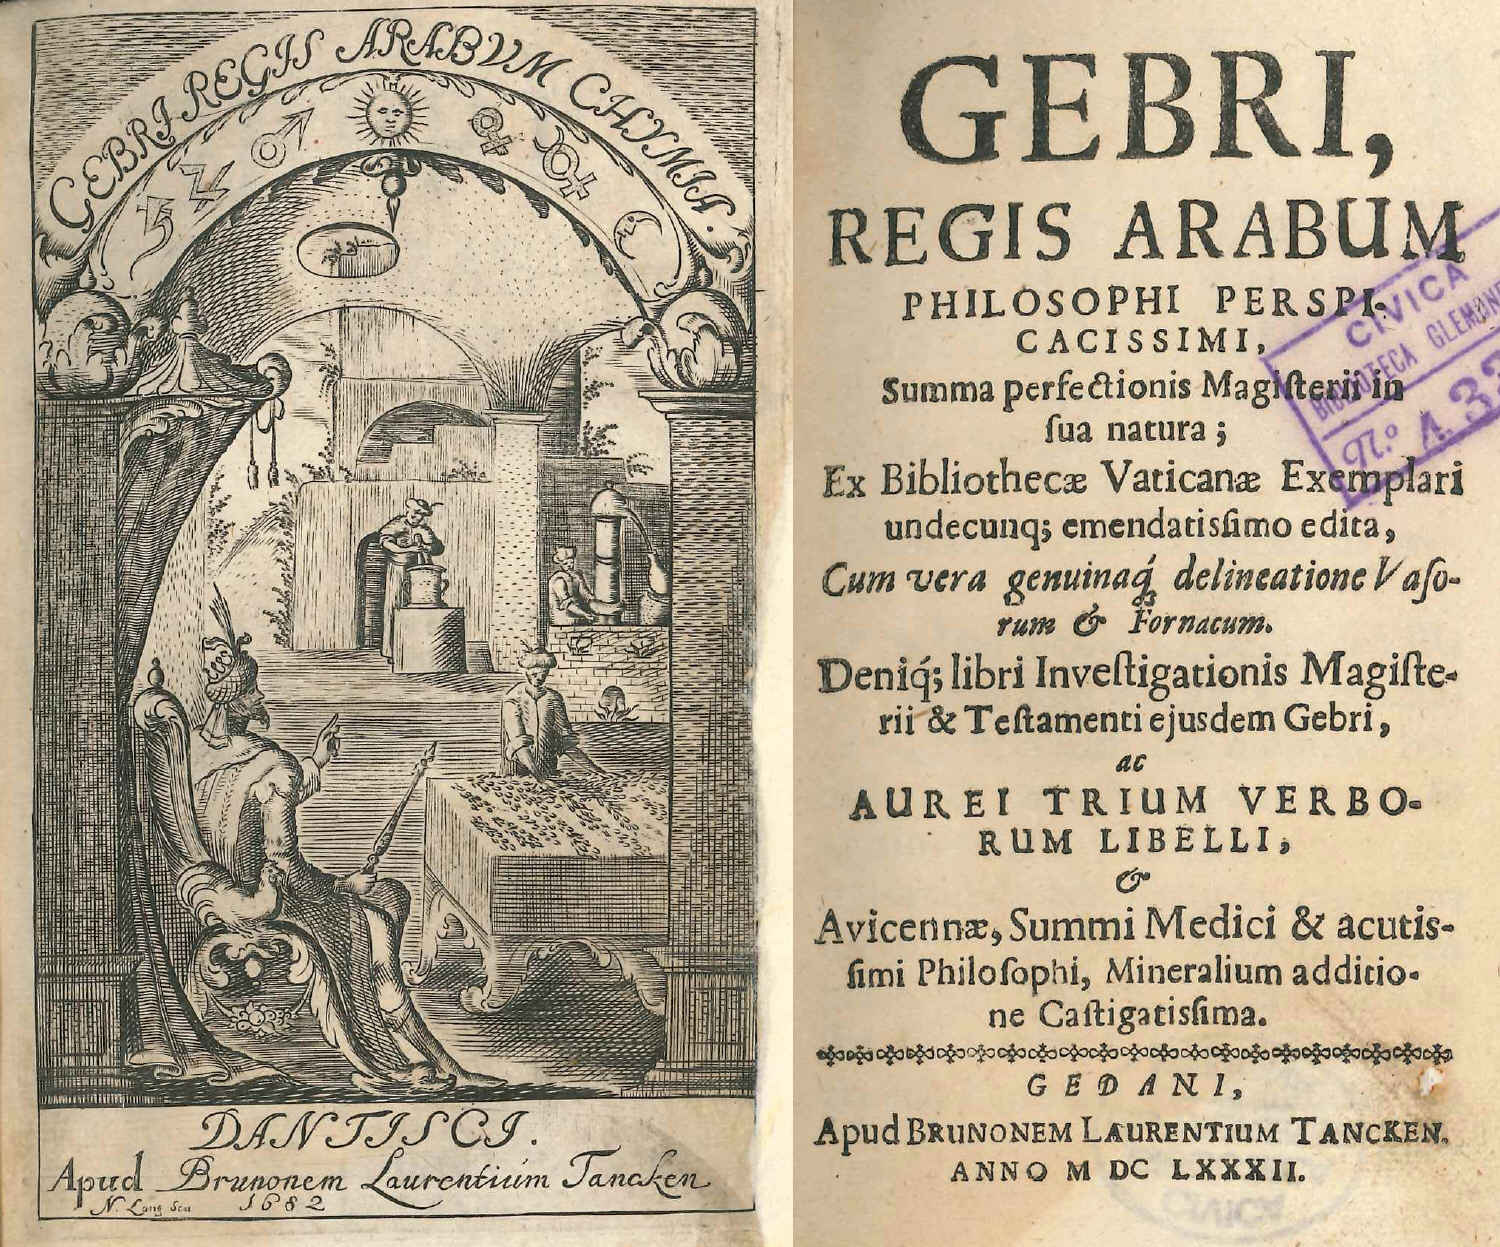 GEBRI REGIS ARABVM CHYMIA.
DANTISCI.
Apud Brunonem Laurentium Tancken
N. Lang Scu
1682
GEBRI,
REGIS ARABUM
PHILOSOPHI PERSPI-
CACISSIMI,
Summa perfectionis Magiſterii in
ſua natura;
Ex Bibliothecæ Vaticanæ Exemplari
undecunq; emendatisſimo edita,
Cum vera genuinaq́; delineatione Vaſo-
rum & Fornacum.
Deniq́; libri Inveſtigationis Magiſte-
rii & Teſtamenti ejusdem Gebri,
ac
AUREI TRIUM VERBO-
RUM LIBELLI,
&
Avicennæ, Summi Medici & acutis-
ſimi Philoſophi, Mineralium additio-
ne Caſtigatisſima.
GEDANI,
Apud BRUNONEM LAURENTIUM TANCKEN.
ANNO M DC LXXXII.
CIVICA
BIBLIOTECA
N.º
CIVICA